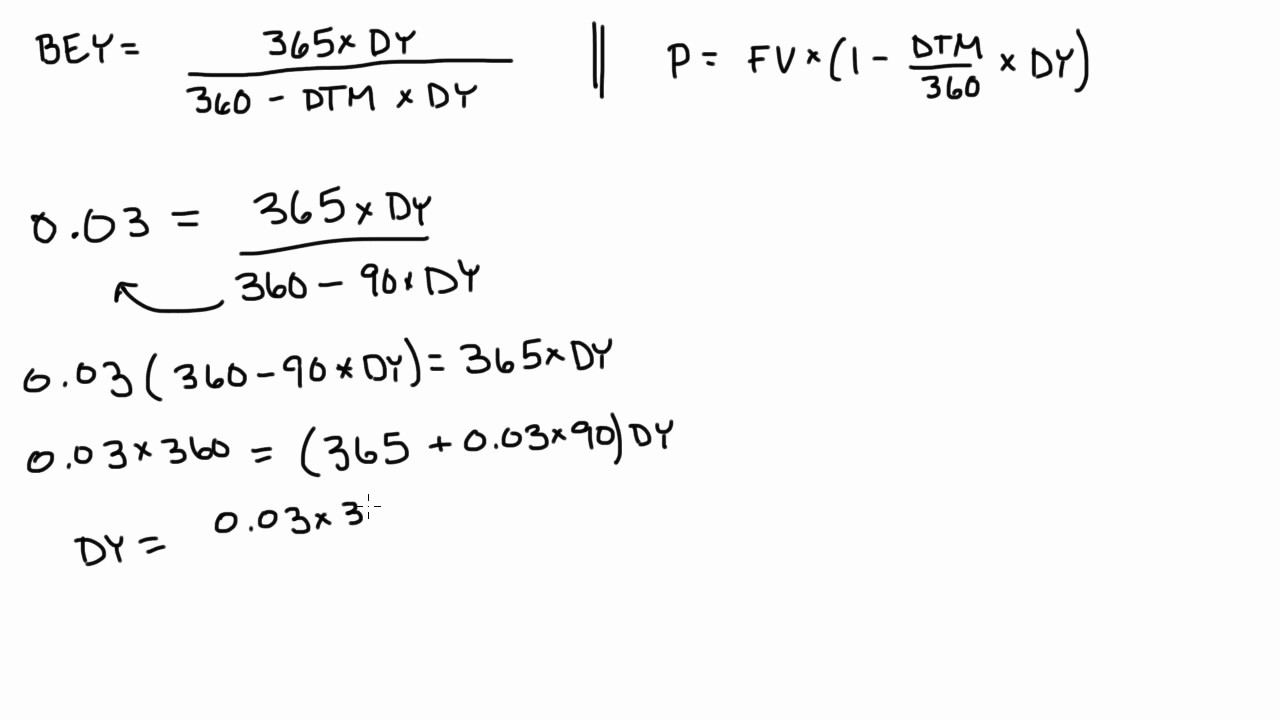 BEY = 365 × DY / 360 - DTM × DY || P = FV × (1 - DTM/360 × DY)
0.03 = 365 × DY / 360 - 90 × DY
0.03 (360 - 90 × DY) = 365 × DY
0.03 × 360 = (365 + 0.03 × 90) DY
DY = 0.03 × 3